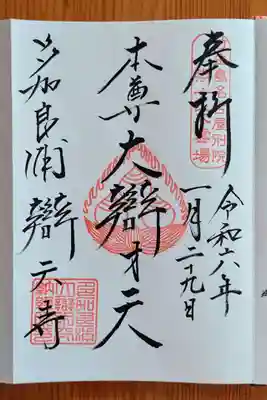 奉拝
令和六年
一月二十九日
本尊 大辯才天
多加良浦 辯天寺